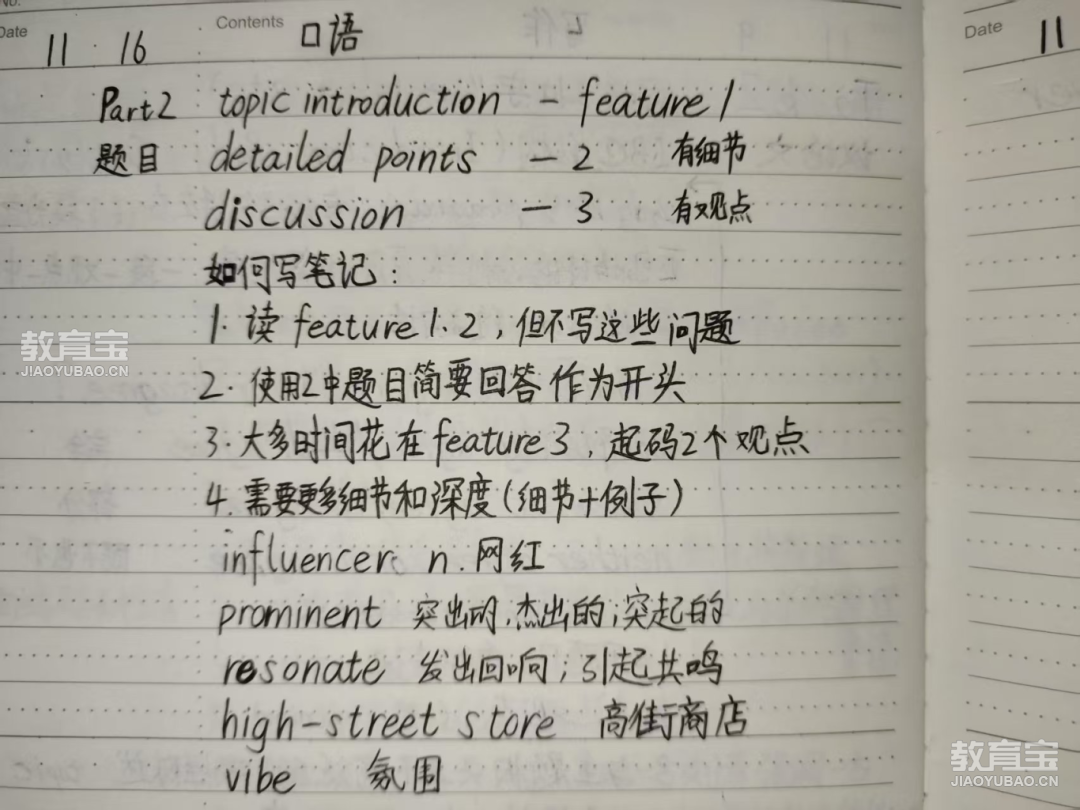 No.
Date 11 16 Contents 口语
Part2 topic introduction - feature 1
题目 detailed points - 2 有细节
discussion - 3 有观点
如何写笔记:
1. 读 feature 1. 2, 但不写这些问题
2. 使用2中题目简要回答作为开头
3. 大多时间花在feature 3, 起码2个观点
4. 需要更多细节和深度(细节+例子)
influencer n. 网红
prominent 突出的,杰出的;突起的
resonate 发出回响;引起共鸣
high-street store 高街商店
vibe 氛围
Date 11
教育宝
JIAOYUBAO.CN
教育宝
JIAOYUBAO.CN